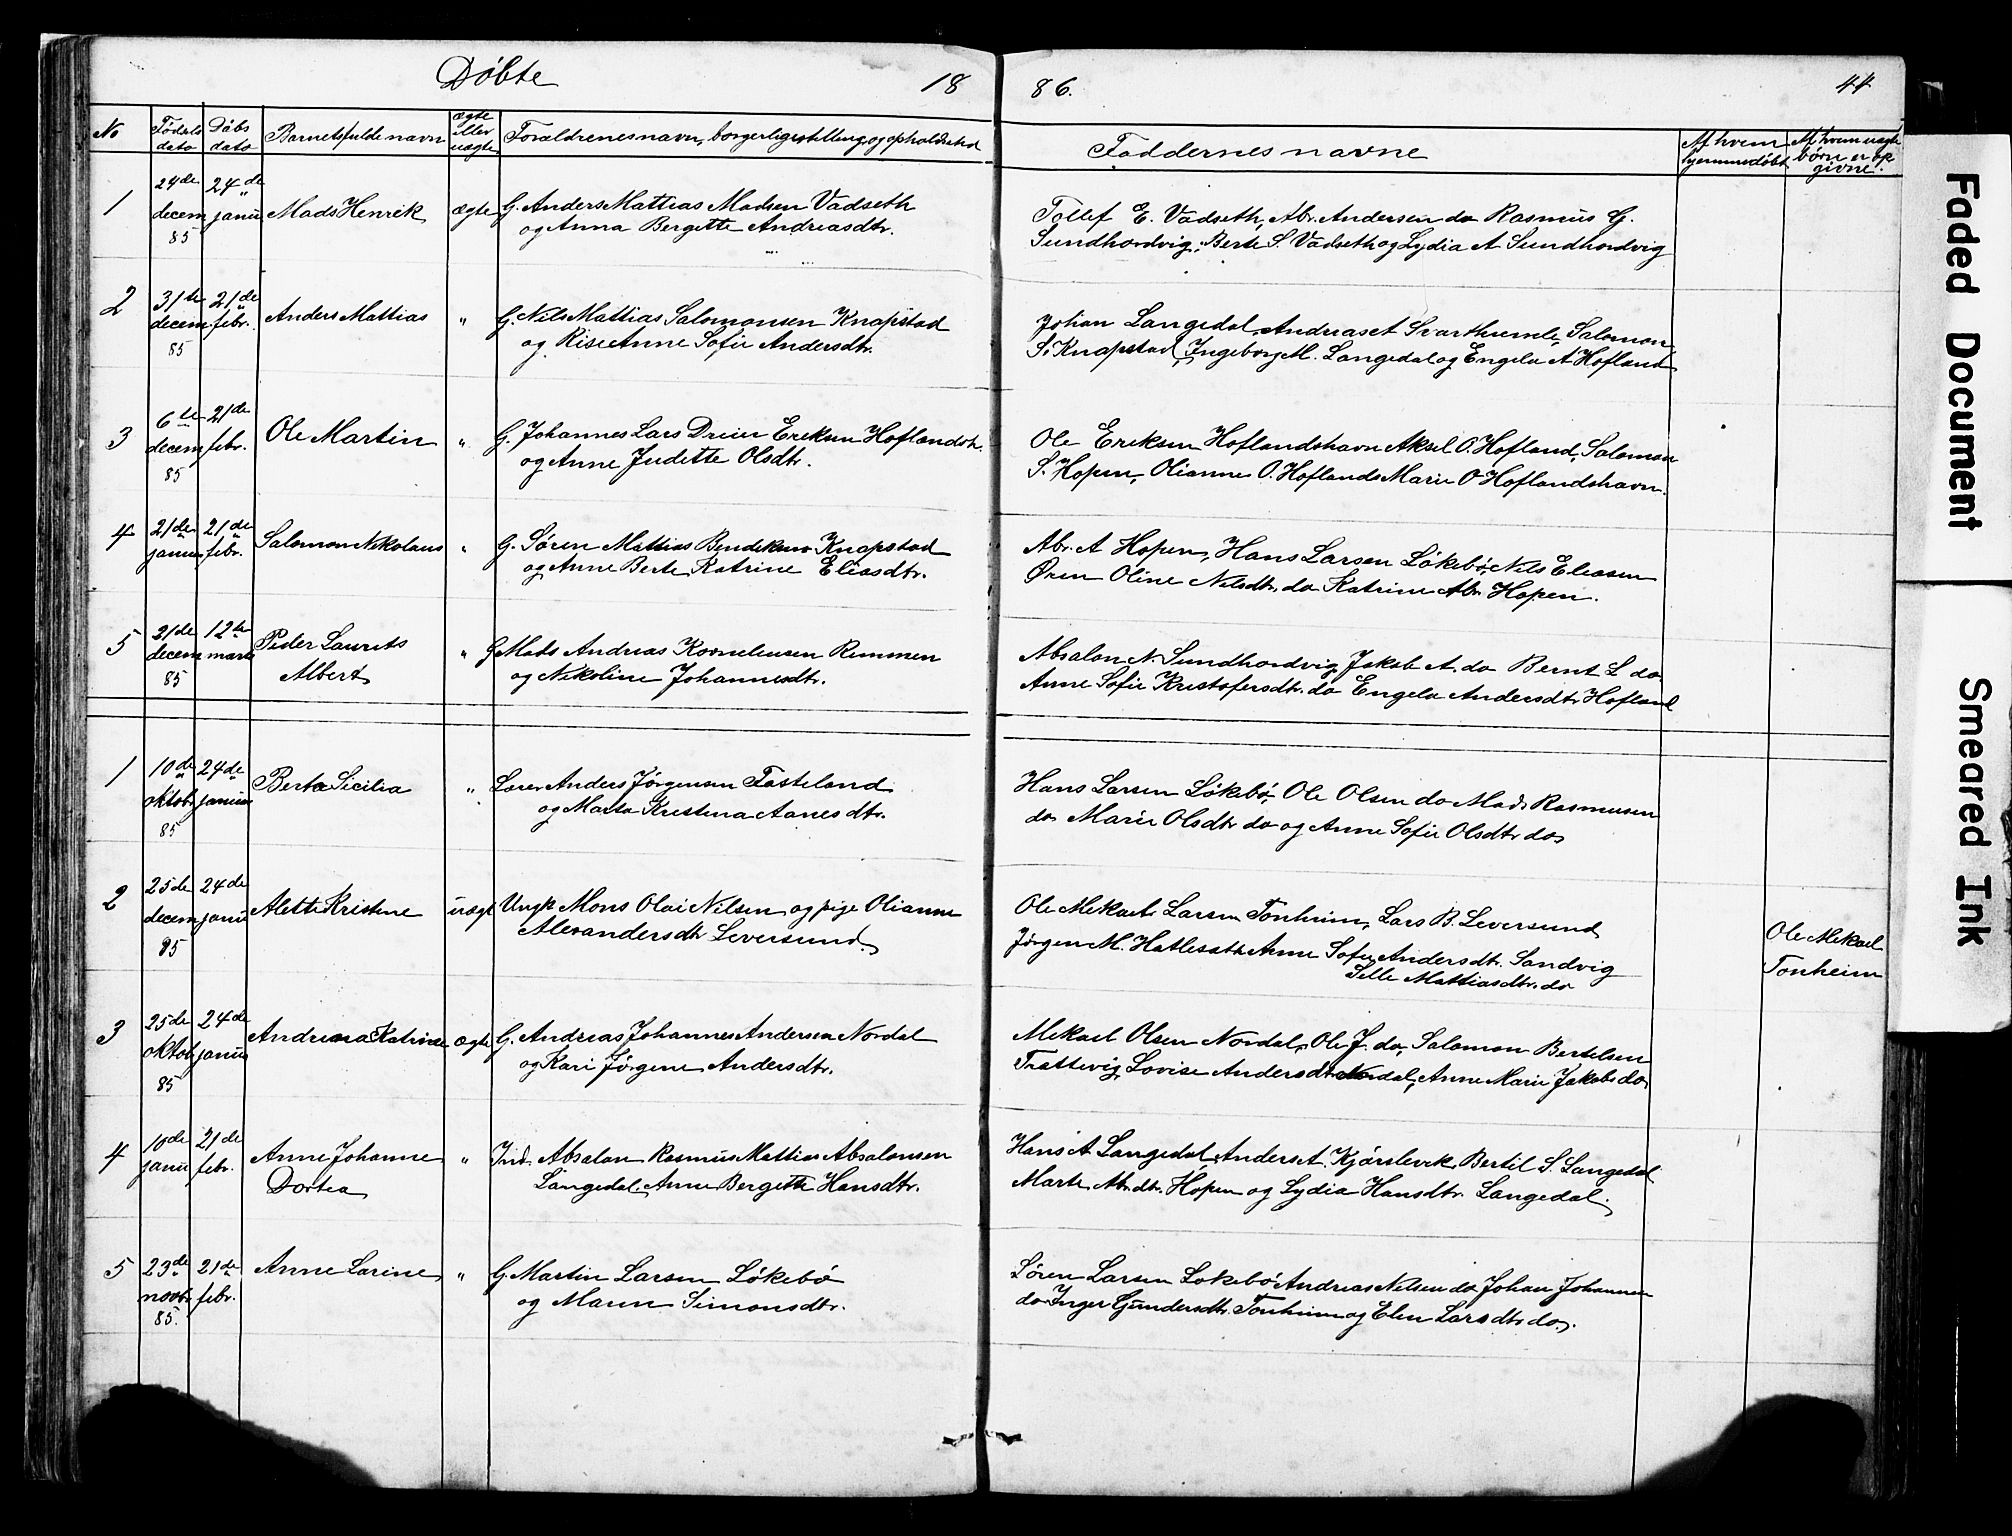 Døbte 18 86. 44
No Fødsels dato Døbs dato Barnets fulde navn ægte eller uægte Forældrenes navn, borgerlige stilling og opholdssted Faddernes navne Af hvem hjemmedøbt Af hvem uægte børn er op givne.
1 24de decem 85 24de janu Mads Henrik ægte G. Anders Mattias Madsen Vadseth
og Anna Bergitte Andreasdtr.
Tollef E. Vadseth, Abr. Andersen do Rasmus G.
Sundhordvig, Berte S. Vadseth og Lydia A Sundhordvig
2 31te decem. 85 21de febr. Anders Mattias " G. Nils Mattias Salomonsen Knapstad
og Anne Sofie Andersdtr.
Johan Langedal, Andreas Svarthumle, Salomon
S. Knapstad, Ingeborg M. Langedal og Engela A Hofland
3 6te decem 85 21de febr. Ole Martin " G. Johannes Lars Dreier Eriksen Hoflandsh.
og Anne Judette Olsdtr.
Ole Eriksen Hoflandshavn Aksel O. Hofland, Salomon
S. Hopen, Olianne O. Hoflands Marie O Hoflandshavn.
4 21de janu 21de febr. Salomon Nikolaus " G. Søren Mattias Bendiksen Knapstad
og Anne Berte Katrine Eliasdtr.
Abr. A Hopen, Hans Larsen Løkebø, Nils Eliasen
Øren Oline Nilsdtr. do Katrine Abr. Hopen.
5 21de decem 85 12te marts Peder Laurits
Albert " G Mads Andreas Korneliussen Remmen
og Nikoline Johannesdtr.
Absalon N. Sundhordvig Jakob A. do Bernt L do
Anne Sofie Kristofersdtr. do Engela Andersdtr Hofland
1 10de oktob. 85 24de janu Berta Sicilia " Lærer Anders Jørgensen Fasteland
og Marta Kristina Aanesdtr.
Hans Larsen Løkebø, Ole Olsen do Mads Rasmusen
do Marie Olsdtr do og Anne Sofie Olsdtr do
2 25de decem 85 24de janu Alette Kristine uægt Ungk Mons Olai Nilsen og pige Olianne
Alexandersdtr Leversund
Ole Mikael Larsen Tonheim, Lars B. Leversund
Jørgen M. Hatleseth Anne Sofie Andersdtr. Sandvig
Sille Mattiasdtr. do
Ole Mikael
Tonheim
3 25de oktob 85 24de janu Andrina Katrine ægte G. Andreas Johannes Andersen Nordal
og Kari Jørgene Andersdtr.
Mikael Olsen Nordal, Ole J. do, Salomon Bertelsen
Trættevig, Lovise Andersdtr. Nordal, Anne Marie Jakobs do
4 10de janu 21de febr. Anne Johanne
Dortea " Ind. Absalon Rasmus Mattias Absalonsen
Langedal, Anne Bergitte Hansdtr.
Hans A Langedal, Anders A. Kjørslevik, Bertil S. Langedal
Marte Abrdtr. Hopen og Lydia Hansdtr. Langedal.
5 23de novbr 85. 21de febr. Anne Larine " G. Martin Larsen Løkebø
og Maren Simonsdtr.
Søren Larsen Løkebø Andreas Nilsen do Johan Johannes
do Inger Gundersdtr. Tonheim og Elen Larsdtr do.
Faded Document
Smeared Ink